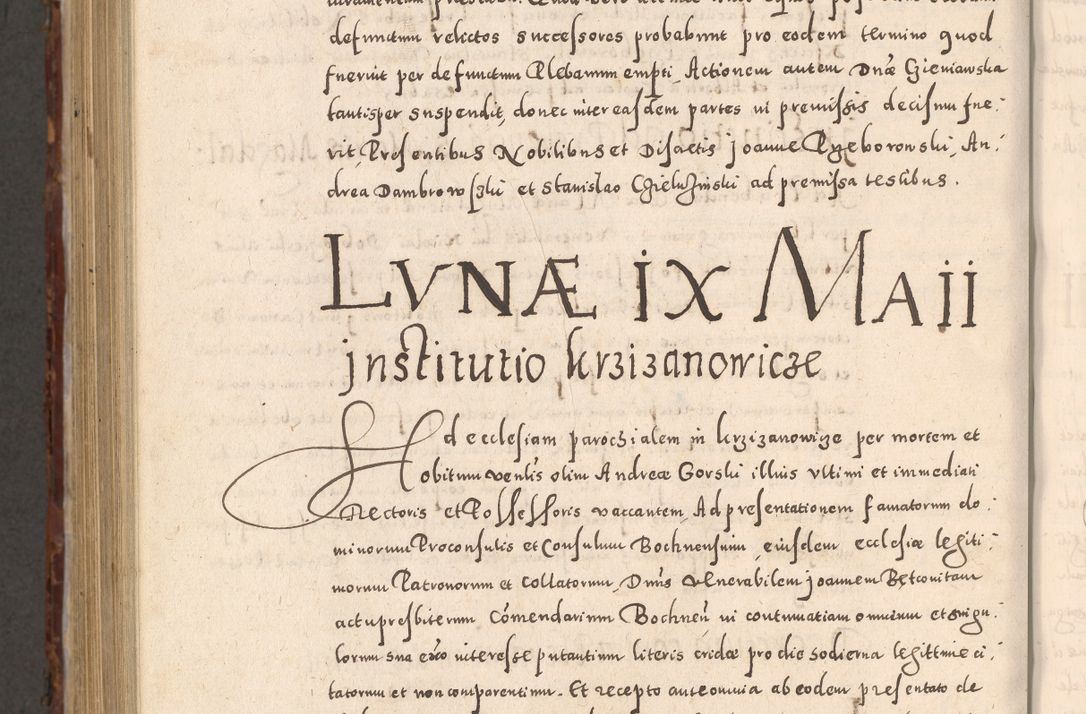 defunctum relictos successores probabunt pro eodem termino quod
fuerint per defunctum Plebanum empti, Actionem autem Dnæ Czieniawska
tantisper suspendit, donec inter easdem partes in premissis decisum fue:
rit, Presentibus Nobilibus et Discretis Joanne Rzeborowski, An:
drea Dambrowszki et Stanislao Czieluzinski ad premissa testibus.
LVNÆ IX MAII
Institutio krzizanowicze
Ad ecclesiam parochialem in krzizanowize per mortem et
obitum venlis olim Andreæ Gorski illius ultimi et immediati
Rectoris et Possessoris vaccantem, Ad presentationem famatorum do:
minorum Proconsulis et Consulum Bochnensium, eiusdem ecclesiæ legiti:
morum Patronorum et Collatorum, Dnus Venerabilem Joannem Betconitam
actu presbiterum Comendarium Bochnen in contumatiam omnium et singu:
lorum sua interesse putantium literis cridæ pro die hodierna legittime ci:
tatorum et non comparentium. Et recepto ante omnia ab eodem presentato de